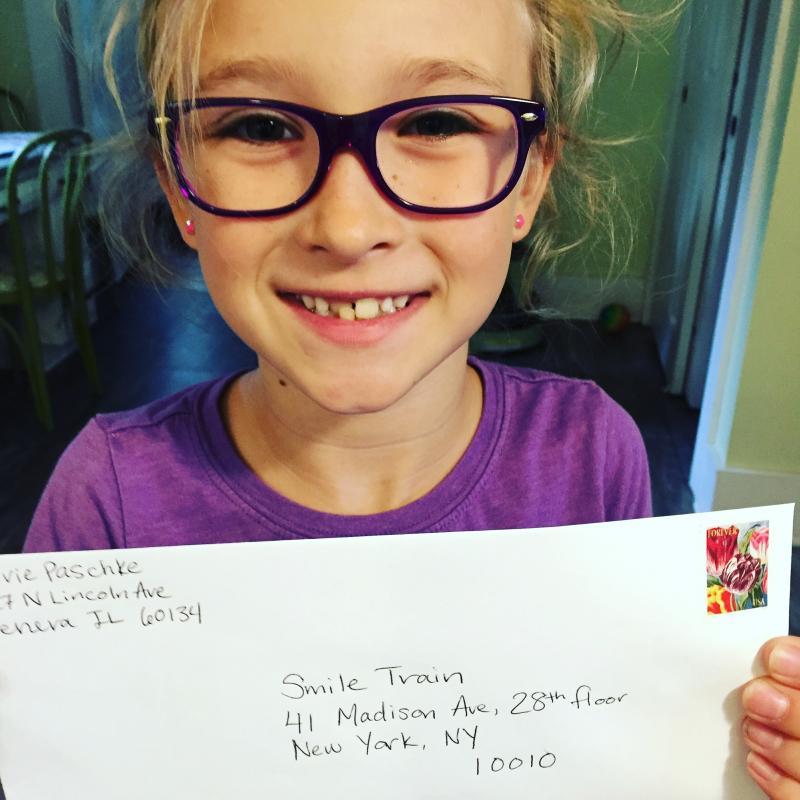 vie Paschke
7 N Lincoln Ave
eneva IL 60134
FOREVER
USA
Smile Train
41 Madison Ave, 28th floor
New York, NY
10010